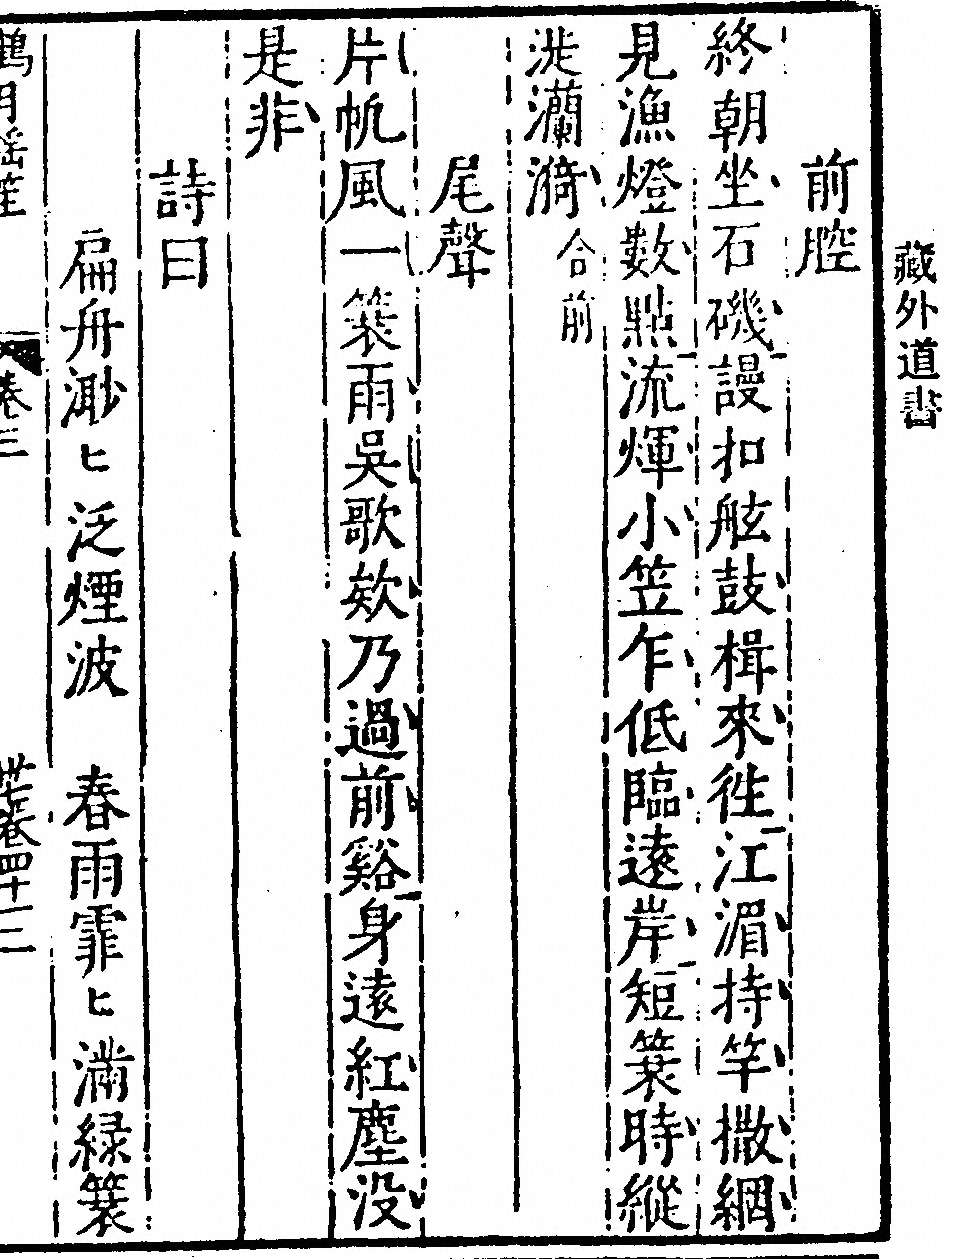 藏外道書
前腔
終朝坐石磯謾扣舷鼓楫來徃江湄持竿撒網
見漁燈數點流煇小笠乍低臨遠岸短簑時縱
漇灡漪合前
尾聲
片帆風一簑雨吳歌欸乃過前谿身遠紅塵没
是非
詩曰
扁舟渺〻泛煙波　春雨霏〻満緑簑
鶴月瑤笙 卷三 廿七卷四十三